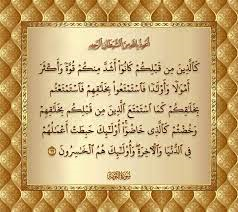 أعوذ بالله من الشيطان الرجيم
كَالَّذِينَ مِن قَبْلِكُمْ كَانُوٓا۟ أَشَدَّ مِنكُمْ قُوَّةً وَأَكْثَرَ
أَمْوَٰلًا وَأَوْلَـٰدًا فَٱسْتَمْتَعُوا۟ بِخَلَـٰقِهِمْ فَٱسْتَمْتَعْتُم
بِخَلَـٰقِكُمْ كَمَا ٱسْتَمْتَعَ ٱلَّذِينَ مِن قَبْلِكُم بِخَلَـٰقِهِمْ
وَخُضْتُمْ كَٱلَّذِى خَاضُوٓا۟ أُو۟لَـٰٓئِكَ حَبِطَتْ أَعْمَـٰلُهُمْ
فِى ٱلدُّنْيَا وَٱلْـَٔاخِرَةِ وَأُو۟لَـٰٓئِكَ هُمُ ٱلْخَـٰسِرُونَ
سورة التوبة